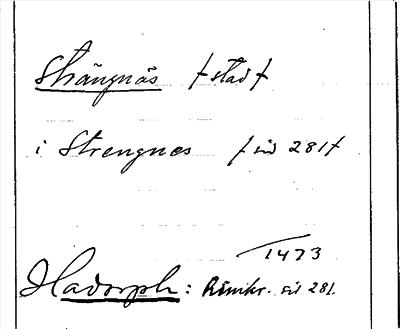 Strängnäs /stad/
i Strengnes /sid 281/
1473
Hadorph: Rimkr. sid 281.